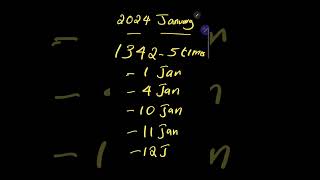 2024 January
1342 - 5 times
- 1 Jan
- 4 Jan
- 10 Jan
- 11 Jan
- 12 J